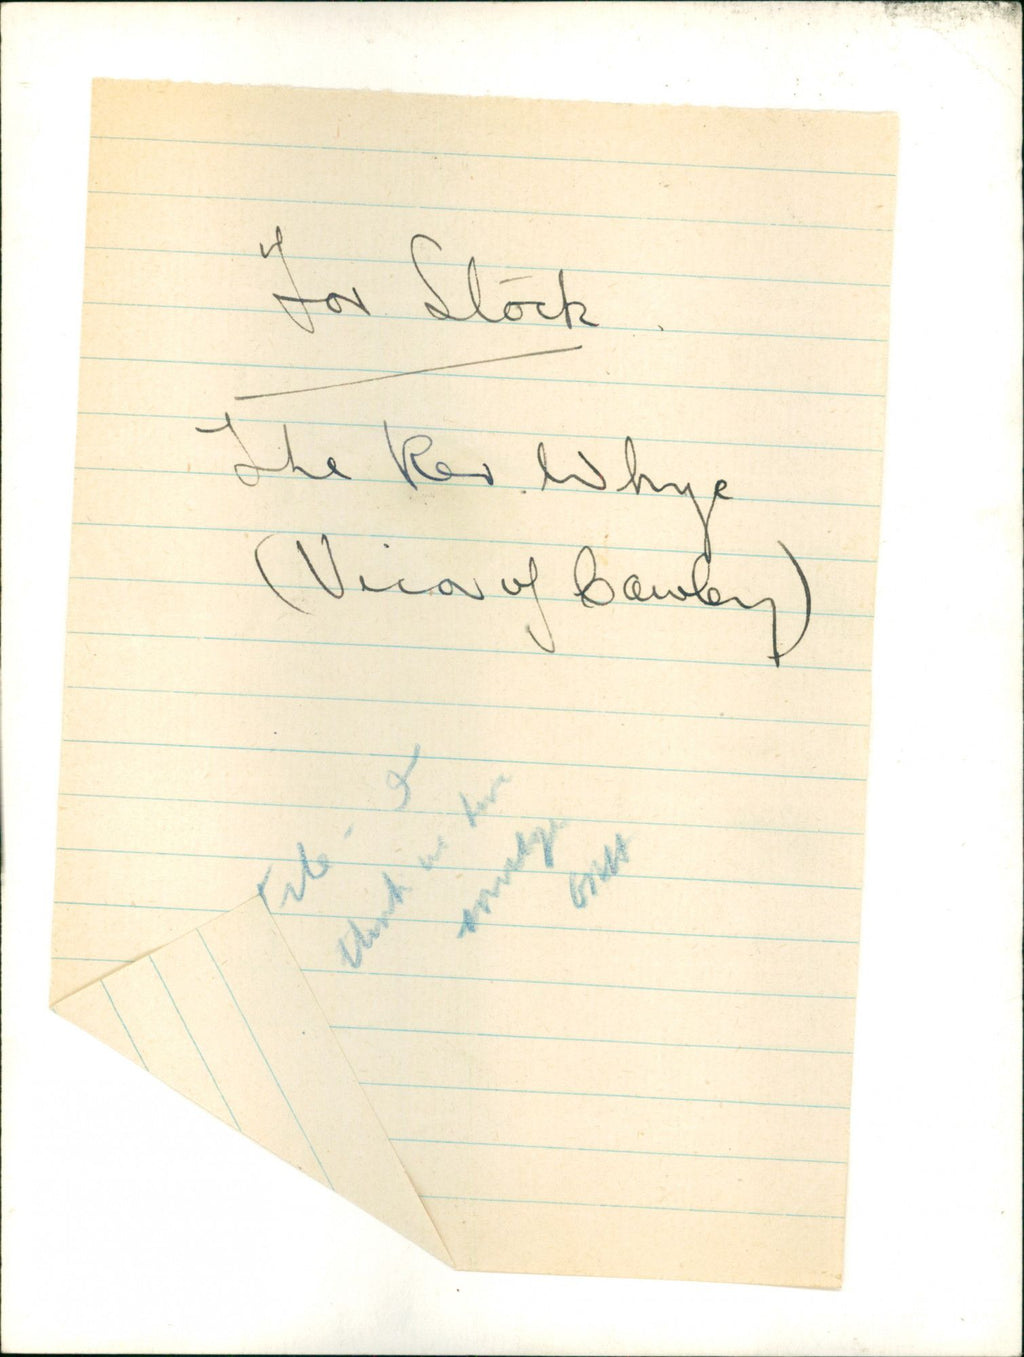 For Stock.
The Rev. Whye
(Vicar of Cowley)
File - I
think we have